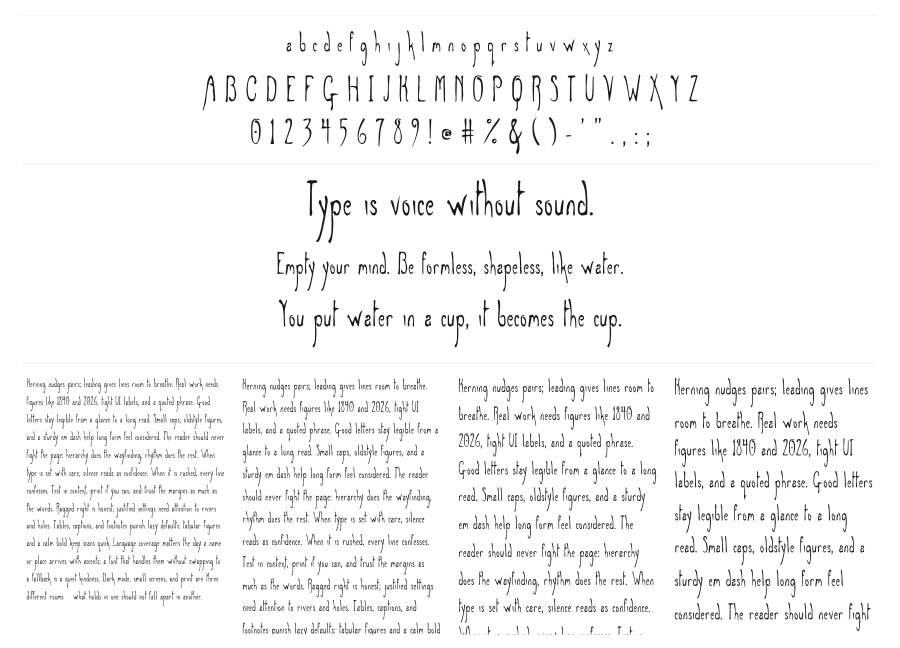 a b c d e f g h i j k l m n o p q r s t u v w x y z
A B C D E F G H I J K L M N O P Q R S T U V W X Y Z
0 1 2 3 4 5 6 7 8 9 ! @ # % & ( ) - ' " . , : ;
Type is voice without sound.
Empty your mind. Be formless, shapeless, like water.
You put water in a cup, it becomes the cup.
Kerning nudges pairs; leading gives lines room to breathe. Real work needs
figures like 1840 and 2026, tight UI labels, and a quoted phrase. Good
letters stay legible from a glance to a long read. Small caps, oldstyle figures,
and a sturdy em dash help long form feel considered. The reader should never
fight the page: hierarchy does the wayfinding, rhythm does the rest. When
type is set with care, silence reads as confidence. When it is rushed, every line
confesses. Test in context, print if you can, and trust the margins as much as
the words. Ragged right is honest; justified settings need attention to rivers
and holes. Tables, captions, and footnotes punish lazy defaults: tabular figures
and a calm bold keep scans quick. Language coverage matters the day a name
or place arrives with accents; a font that handles them without swapping to
a fallback is a quiet kindness. Dark mode, small screens, and print are three
different rooms what holds in one should not fall apart in another.
Kerning nudges pairs; leading gives lines room to breathe.
Real work needs figures like 1840 and 2026, tight UI
labels, and a quoted phrase. Good letters stay legible from a
glance to a long read. Small caps, oldstyle figures, and a
sturdy em dash help long form feel considered. The reader
should never fight the page: hierarchy does the wayfinding,
rhythm does the rest. When type is set with care, silence
reads as confidence. When it is rushed, every line confesses.
Test in context, print if you can, and trust the margins as
much as the words. Ragged right is honest; justified settings
need attention to rivers and holes. Tables, captions, and
footnotes punish lazy defaults: tabular figures and a calm bold
Kerning nudges pairs; leading gives lines room to
breathe. Real work needs figures like 1840 and
2026, tight UI labels, and a quoted phrase.
Good letters stay legible from a glance to a long
read. Small caps, oldstyle figures, and a sturdy
em dash help long form feel considered. The
reader should never fight the page: hierarchy
does the wayfinding, rhythm does the rest. When
type is set with care, silence reads as confidence.
Kerning nudges pairs; leading gives lines
room to breathe. Real work needs
figures like 1840 and 2026, tight UI
labels, and a quoted phrase. Good letters
stay legible from a glance to a long
read. Small caps, oldstyle figures, and a
sturdy em dash help long form feel
considered. The reader should never fight